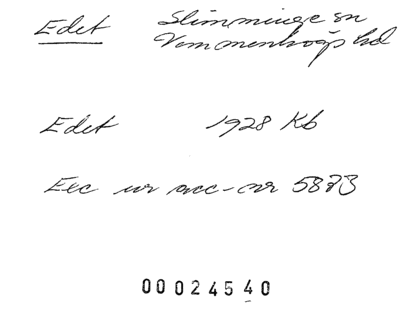 Edet Slimminge sn
Vemmenhögs hd
Edet 1928 Kb
Exc ur acc-nr 5873
00024540